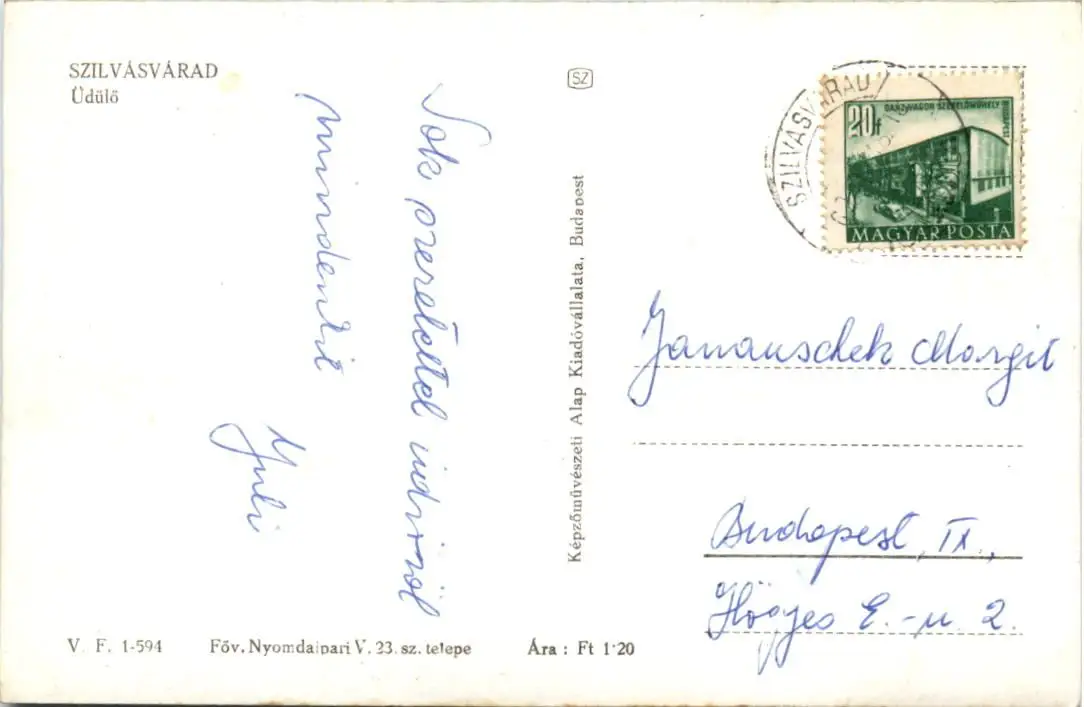 SZILVÁSVÁRAD
Üdülő
Sok szeretettel üdvözöl
mindenkit
Juli
SZ
Képzőművészeti Alap Kiadóvállalata, Budapest
SZILVÁSVÁRAD
20f
GANZ VAGON SZERELŐMŰHELY
BUDAPEST
MAGYAR POSTA
Janauschek Margit
Budapest, IX.,
Hőgyes E.-u 2.
V. F. 1-594 Főv. Nyomdaipari V. 23. sz. telepe Ára : Ft 1·20